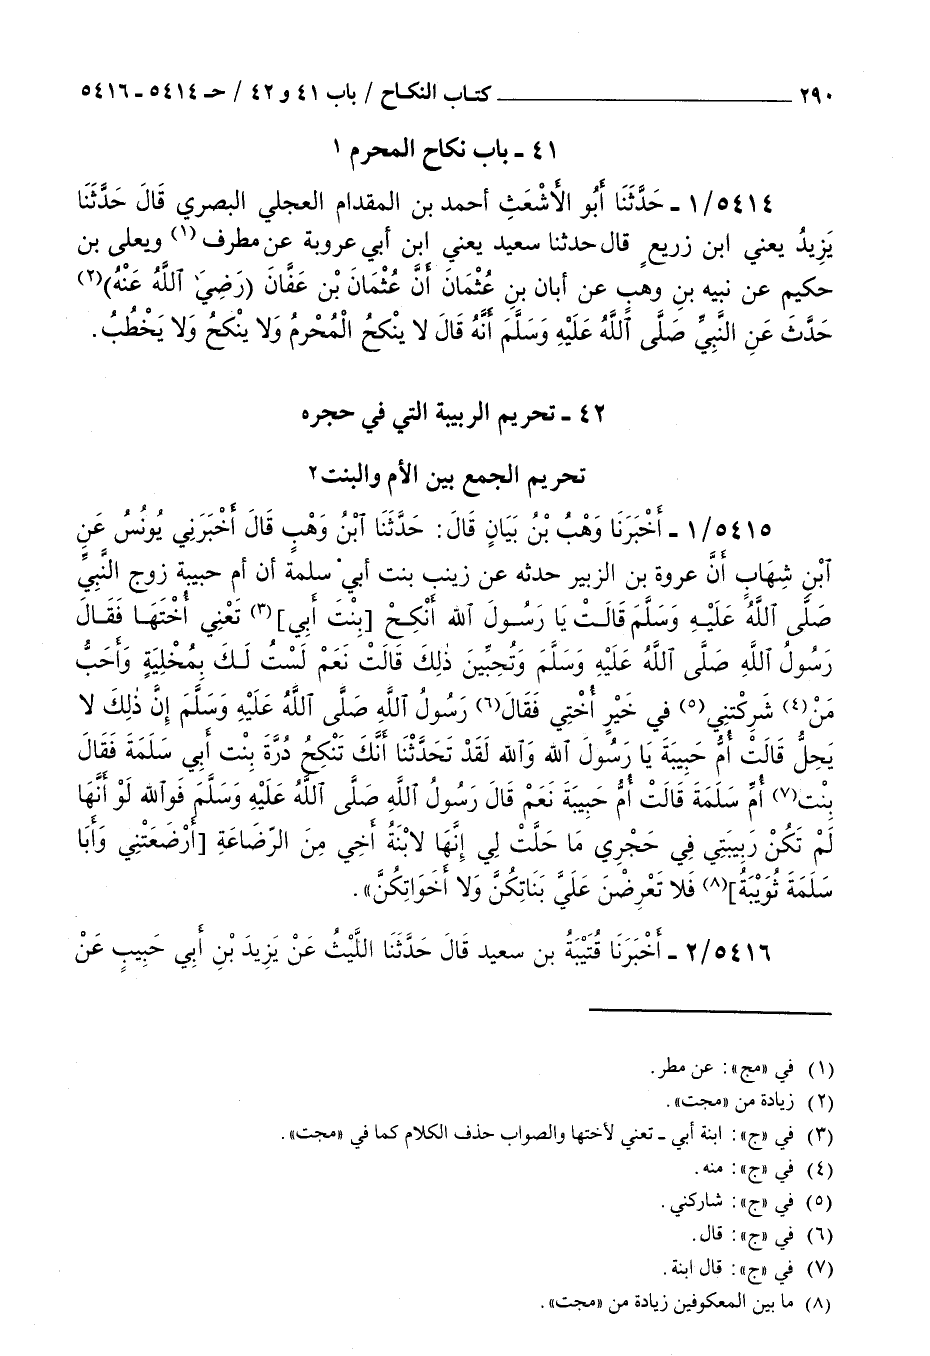 ٢٩٠ ـــــــــــــــــ كتاب النكاح / باب ٤١ و ٤٢ / حـ ٥٤١٤ ـ ٥٤١٦
٤١ ـ باب نكاح المحرم ١
١/٥٤١٤ ـ حَدَّثَنَا أَبُو الأَشْعَثِ أحمد بن المقدام العجلي البصري قَالَ حَدَّثَنَا
يَزِيدُ يعني ابن زريع قال حدثنا سعيد يعني ابن أبي عروبة عن مطرف (١) ويعلى بن
حكيم عن نبيه بن وهب عن أبان بنِ عُثْمَانَ أَنَّ عُثْمَانَ بْنِ عَفَّانَ (رَضِيَ ٱللَّهُ عَنْهُ)(٢)
حَدَّثَ عَنِ النَّبِيِّ صَلَّى ٱللَّهُ عَلَيْهِ وَسَلَّمَ أَنَّهُ قَالَ لا يَنْكِحُ الْمُحْرِمُ وَلا يُنْكِحُ وَلا يَخْطُبُ.
٤٢ ـ تحريم الربيبة التي في حجره
تحريم الجمع بين الأم والبنت ٢
١/٥٤١٥ ـ أَخْبَرَنَا وَهْبُ بْنُ بَيَانٍ قَالَ: حَدَّثَنَا ٱبْنُ وَهْبٍ قَالَ أَخْبَرَنِي يُونُسُ عَنِ
ٱبْنِ شِهَابٍ أَنَّ عروة بن الزبير حدثه عن زينب بنت أبي سلمة أن أم حبيبة زوج النَّبِيِّ
صَلَّى ٱللَّهُ عَلَيْهِ وَسَلَّمَ قَالَتْ يَا رَسُولَ الله أَنْكِحْ [بِنْتَ أَبِي](٣) تَعْنِي أُخْتَهَا فَقَالَ
رَسُولُ ٱللَّهِ صَلَّى ٱللَّهُ عَلَيْهِ وَسَلَّمَ وَتُحِبِّينَ ذٰلِكَ قَالَتْ نَعَمْ لَسْتُ لَكَ بِمُخْلِيَةٍ وَأَحَبُّ
مَنْ(٤) شَرِكَتْنِي(٥) في خَيْرٍ أُخْتِي فَقَالَ(٦) رَسُولُ ٱللَّهِ صَلَّى ٱللَّهُ عَلَيْهِ وَسَلَّمَ إِنَّ ذٰلِكَ لا
يَحِلُّ قَالَتْ أُمُّ حَبِيبَةَ يَا رَسُولَ الله وَالله لَقَدْ تَحَدَّثْنَا أَنَّكَ تَنْكِحُ دُرَّةَ بِنْت أَبِي سَلَمَةَ فَقَالَ
بِنْت(٧) أُمِّ سَلَمَةَ قَالَتْ أُمُّ حَبِيبَةَ نَعَمْ قَالَ رَسُولُ ٱللَّهِ صَلَّى ٱللَّهُ عَلَيْهِ وَسَلَّمَ فَوَالله لَوْ أَنَّهَا
لَمْ تَكُنْ رَبِيبَتِي فِي حَجْرِي مَا حَلَّتْ لِي إِنَّهَا لابْنَةُ أَخِي مِنَ الرَّضَاعَةِ [أَرْضَعَتْنِي وَأَبَا
سَلَمَةَ ثُوَيْبَةُ](٨) فَلا تَعْرِضْنَ عَلَيَّ بَنَاتِكُنَّ وَلا أَخَوَاتِكُنَّ».
٢/٥٤١٦ ـ أَخْبَرَنَا قُتَيْبَةُ بن سعيد قَالَ حَدَّثَنَا اللَّيْثُ عَنْ يَزِيدَ بْنِ أَبِي حَبِيبٍ عَنْ
(١) في «مج»: عن مطر.
(٢) زيادة من «مجت».
(٣) في «ج»: ابنة أبي ـ تعني لأختها والصواب حذف الكلام كما في «مجت».
(٤) في «ج»: منه.
(٥) في «ج»: شاركني.
(٦) في «ج»: قال.
(٧) في «ج»: قال ابنة.
(٨) ما بين المعكوفين زيادة من «مجت».